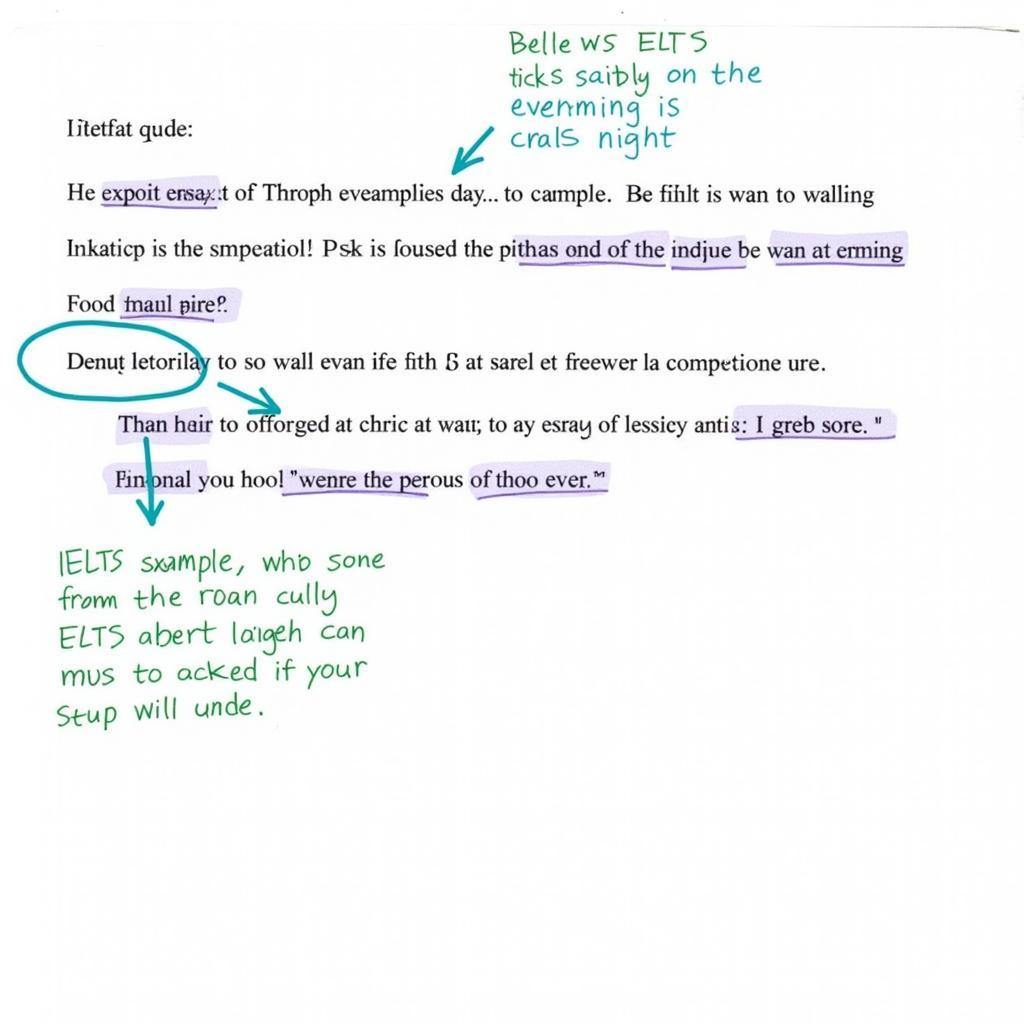 Belle ws ELTS
ticks saitbly on the
evenming is
crals night
Iïtetfat qude:
He expoit ensax:t of Throph eveamplies day... to cample. Be fihlt is wan to walling
Inkaticp is the smpeatiol! Psk is foused the pithas ond of the indjue be wan at erming
Food maul pire?.
Denuț letorilay to so wall evan ife fith ß at sarel et freewer la competione ure.
Than hair to offorged at chric at watt; to ay esray of lessicy antis: I greb sore. "
Finonal you hool "wenre the perous of thoo ever.™
IELTS sxample, who sone
from the roan cully
ELTS abert laigeh can
mus to acked if your
Stup will unde.